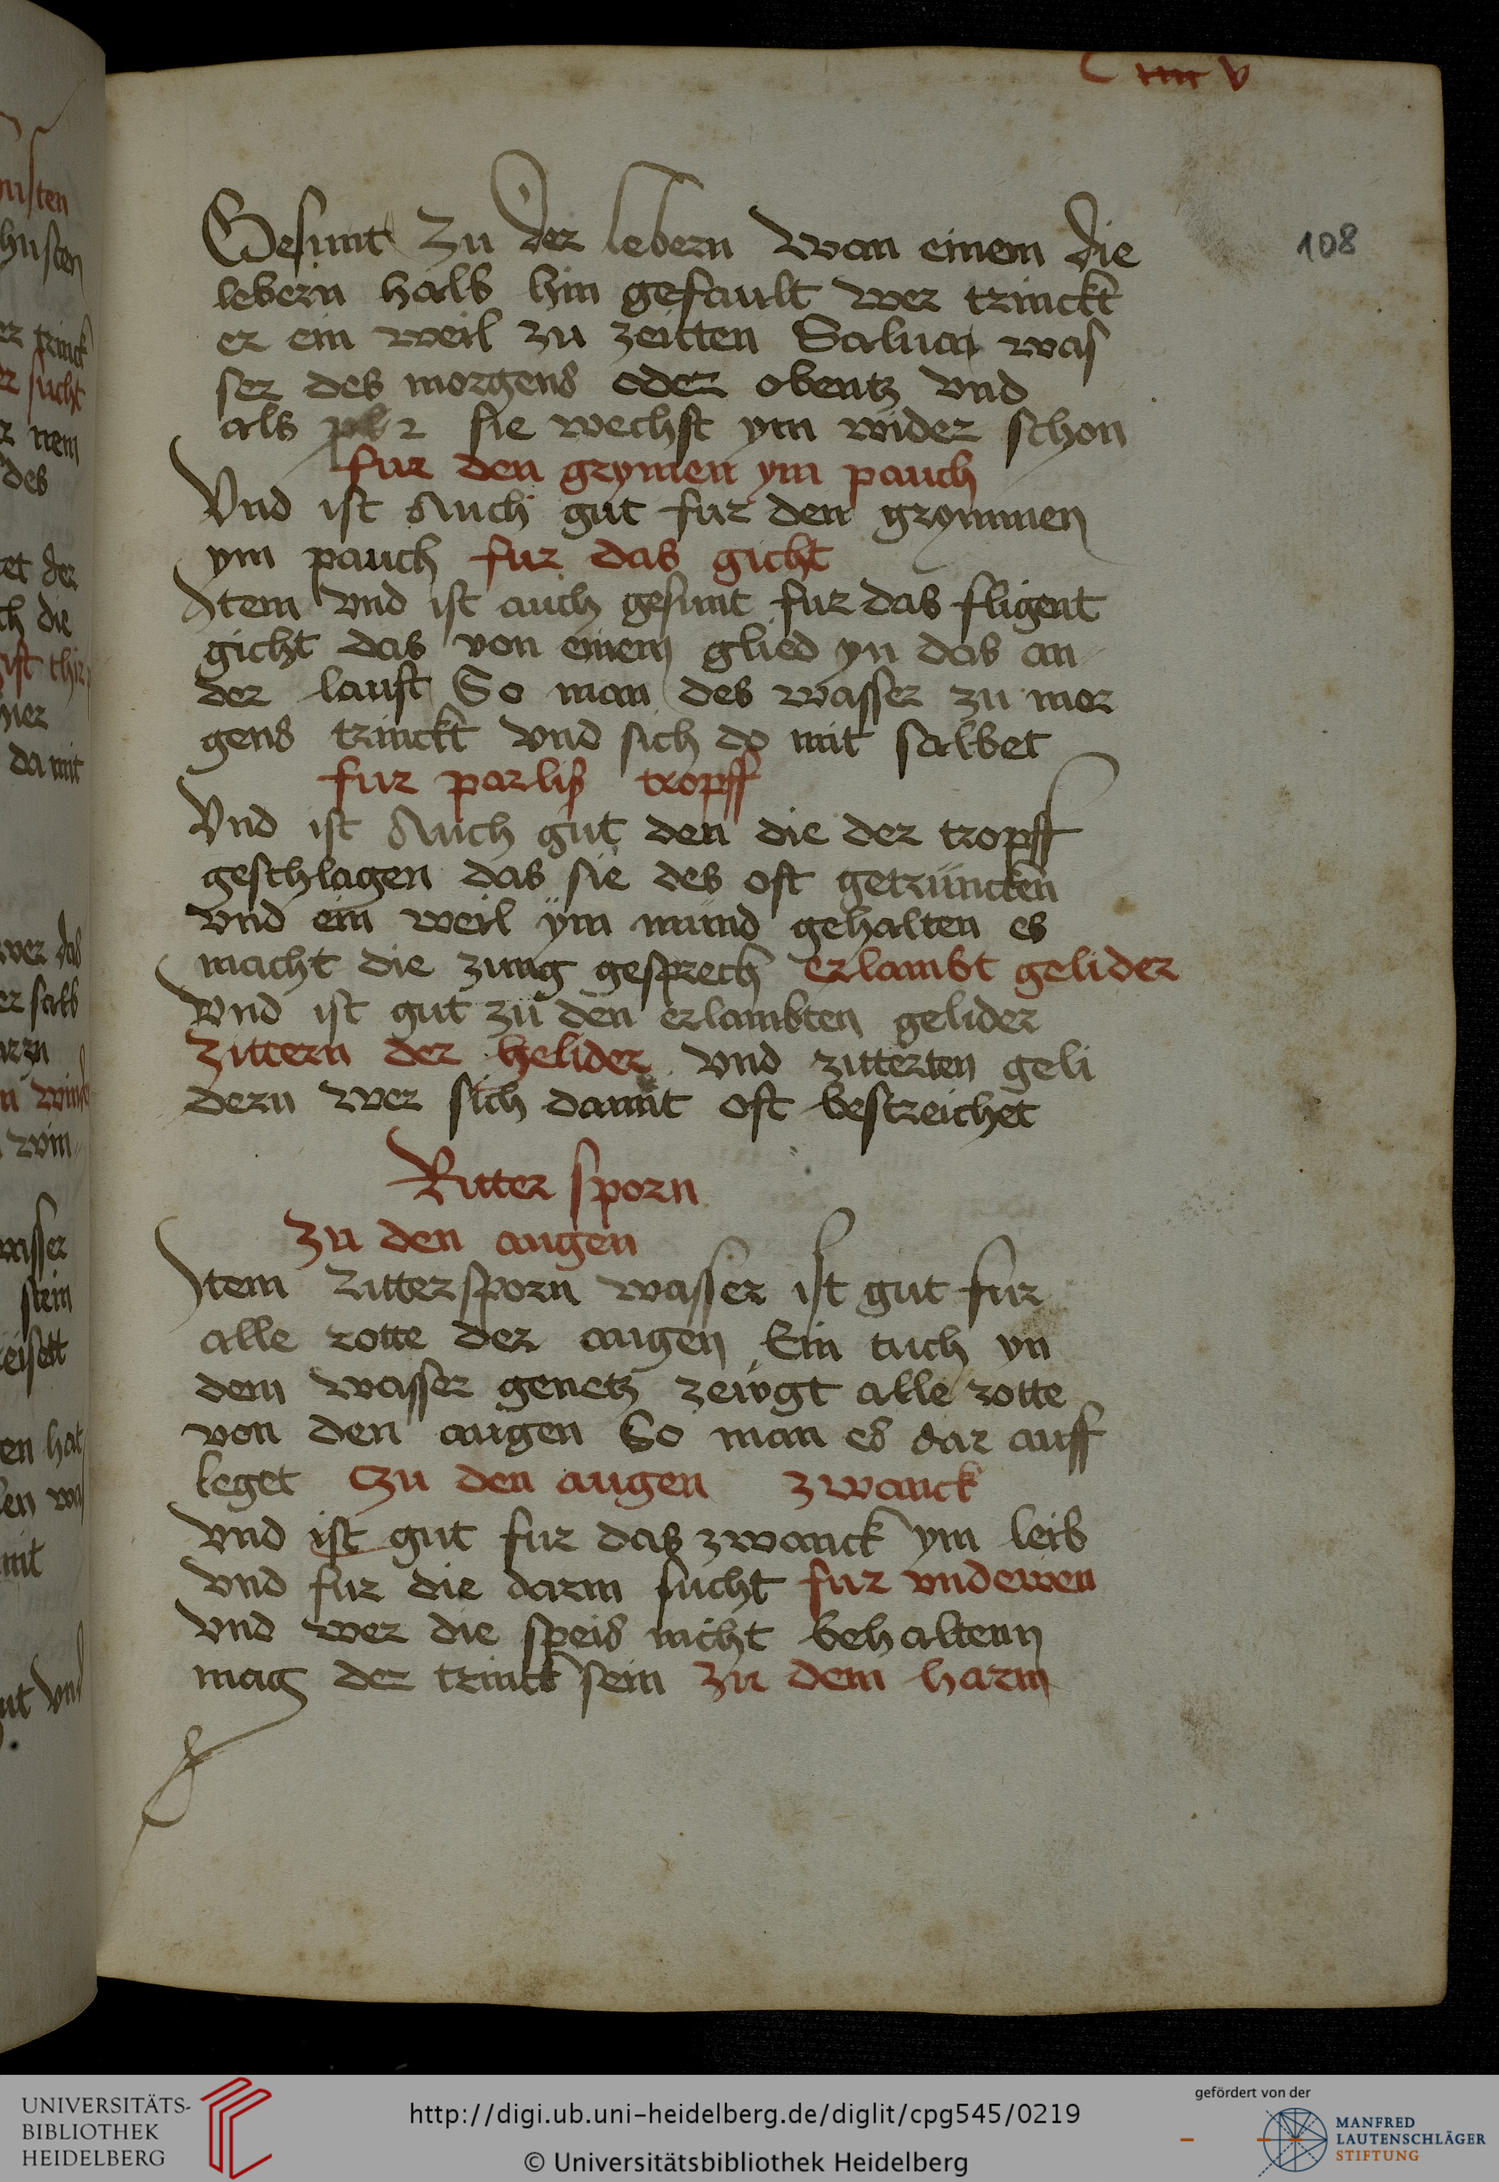 C iiii v
108
Gesunt zu der lebern Wan einem die
lebern halb hin gefault wer trinckt
er ein weil zu zeitten Saluan was
ser des morgens oder obentz vnd
als sie wechst ym wider schon
fur den grymen ym pauch
Vnd ist Auch gut fur den grymmen
ym pauch fur das gicht
Item vnd ist auch gesunt fur das fligent
gicht das von einem glied yn das an
der lauft So man des wasser zu mor
gens trinckt vnd sich do mit salbet
fur parliß tropff
Vnd ist Auch gut den die der tropff
geschlagen das sie des oft getruncken
vnd ein weil ym mund gehalten es
macht die zung gesprech erlambt gelider
Vnd ist gut zu den erlambten gelider
Zittern der helider vnd zitterten geli
dern wer sich damit oft bestreichet
Ritter sporn
Zu den augen
Item Rittersporn wasser ist gut fur
alle rotte der augen Ein tuch yn
dem wasser genetz zewgt alle rotte
von den augen So man es dar auff
leget Czu den augen zwanck
vnd ist gut fur das zwanck ym leib
vnd fur die darm sucht fur vndewen
vnd wer die speis nicht behaltenn
mag der trinck sein zu dem harm
UNIVERSITÄTS-
BIBLIOTHEK
HEIDELBERG
http://digi.ub.uni-heidelberg.de/diglit/cpg545/0219
© Universitätsbibliothek Heidelberg
gefördert von der
MANFRED
LAUTENSCHLÄGER
STIFTUNG